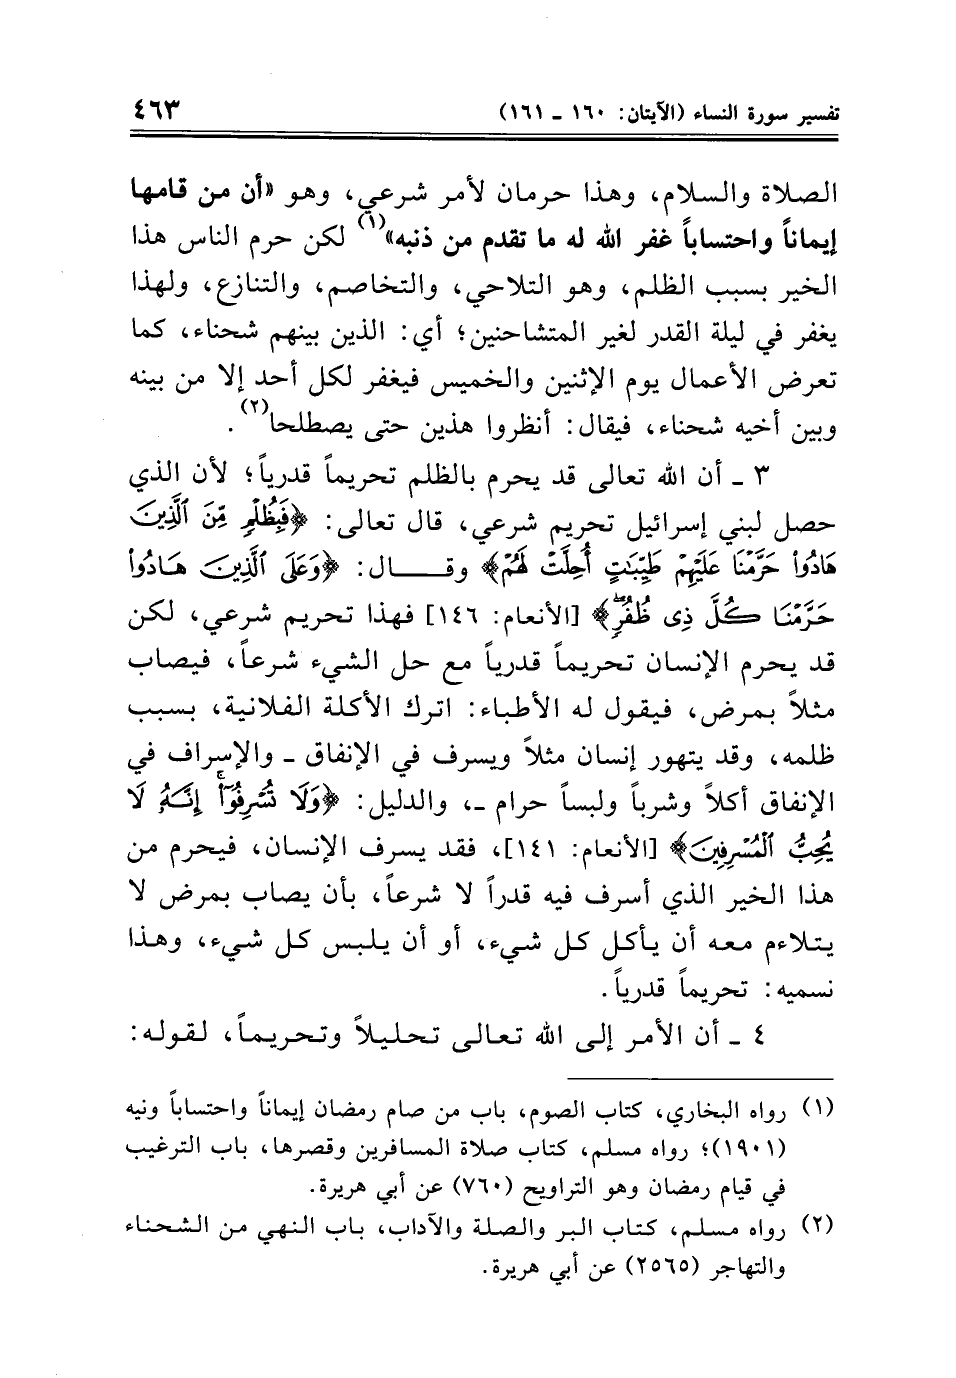 تفسير سورة النساء (الآيتان: ١٦٠ ـ ١٦١) ٤٦٣
الصلاة والسلام، وهذا حرمان لأمر شرعي، وهو «أن من قامها
إيماناً واحتساباً غفر الله له ما تقدم من ذنبه»(١) لكن حرم الناس هذا
الخير بسبب الظلم، وهو التلاحي، والتخاصم، والتنازع، ولهذا
يغفر في ليلة القدر لغير المتشاحنين؛ أي: الذين بينهم شحناء، كما
تعرض الأعمال يوم الإثنين والخميس فيغفر لكل أحد إلا من بينه
وبين أخيه شحناء، فيقال: أنظروا هذين حتى يصطلحا(٢).
٣ ـ أن الله تعالى قد يحرم بالظلم تحريماً قدرياً؛ لأن الذي
حصل لبني إسرائيل تحريم شرعي، قال تعالى: ﴿فَبِظُلْمٍ مِّنَ ٱلَّذِينَ
هَادُوا۟ حَرَّمْنَا عَلَيْهِمْ طَيِّبَٰتٍ أُحِلَّتْ لَهُمْ﴾ وقـــال: ﴿وَعَلَى ٱلَّذِينَ هَادُوا۟
حَرَّمْنَا كُلَّ ذِى ظُفُرٍۖ﴾ [الأنعام: ١٤٦] فهذا تحريم شرعي، لكن
قد يحرم الإنسان تحريماً قدرياً مع حل الشيء شرعاً، فيصاب
مثلاً بمرض، فيقول له الأطباء: اترك الأكلة الفلانية، بسبب
ظلمه، وقد يتهور إنسان مثلاً ويسرف في الإنفاق ـ والإسراف في
الإنفاق أكلاً وشرباً ولبساً حرام ـ، والدليل: ﴿وَلَا تُسْرِفُوٓا۟ۚ إِنَّهُۥ لَا
يُحِبُّ ٱلْمُسْرِفِينَ﴾ [الأنعام: ١٤١]، فقد يسرف الإنسان، فيحرم من
هذا الخير الذي أسرف فيه قدراً لا شرعاً، بأن يصاب بمرض لا
يتلاءم معه أن يأكل كل شيء، أو أن يلبس كل شيء، وهذا
نسميه: تحريماً قدرياً.
٤ ـ أن الأمر إلى الله تعالى تحليلاً وتحريماً، لقوله:
(١) رواه البخاري، كتاب الصوم، باب من صام رمضان إيماناً واحتساباً ونيه
(١٩٠١)؛ رواه مسلم، كتاب صلاة المسافرين وقصرها، باب الترغيب
في قيام رمضان وهو التراويح (٧٦٠) عن أبي هريرة.
(٢) رواه مسلم، كتاب البر والصلة والآداب، باب النهي من الشحناء
والتهاجر (٢٥٦٥) عن أبي هريرة.